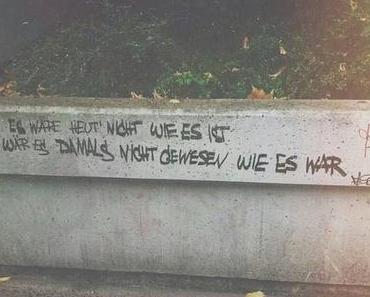 ES WÄRE HEUT' NICHT WIE ES IST
WÄR ES DAMALS NICHT GEWESEN WIE ES WAR